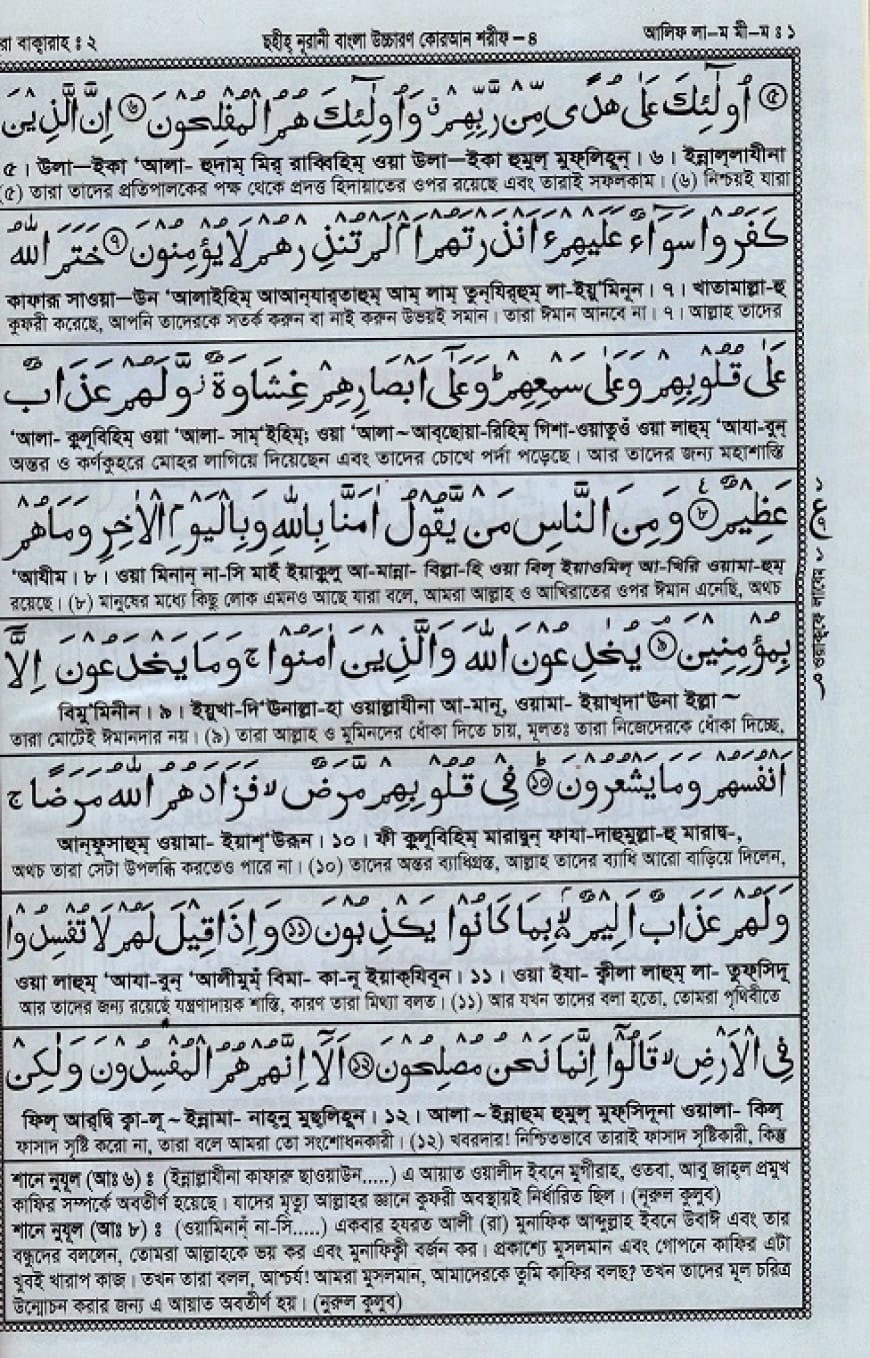 রা বাক্বারাহ্ ঃ ২ ছহীহ্ নূরানী বাংলা উচ্চারণ কোরআন শরীফ – ৪ আলিফ লা-ম মী-ম ঃ ১
۝٥ أُولَٰئِكَ عَلَىٰ هُدًى مِّن رَّبِّهِمْ ۖ وَأُولَٰئِكَ هُمُ الْمُفْلِحُونَ ۝٦ إِنَّ الَّذِينَ
৫ । উলা—ইকা ‘আলা- হুদাম্ মির্ রাব্বিহিম্ ওয়া উলা—ইকা হুমুল্ মুফ্লিহূন্ । ৬ । ইন্নাল্লাযীনা
(৫) তারা তাদের প্রতিপালকের পক্ষ থেকে প্রদত্ত হিদায়াতের ওপর রয়েছে এবং তারাই সফলকাম । (৬) নিশ্চয়ই যারা
كَفَرُوا سَوَاءٌ عَلَيْهِمْ ءَأَنذَرْتَهُمْ أَمْ لَمْ تُنذِرْهُمْ لَا يُؤْمِنُونَ ۝٧ خَتَمَ اللَّهُ
কাফারূ সাওয়া—উন ‘আলাইহিম্ আআন্যার্তাহুম্ আম্ লাম্ তুন্যির্হুম্ লা-ইয়ু’মিনূন । ৭ । খাতামাল্লা-হু
কুফরী করেছে, আপনি তাদেরকে সতর্ক করুন বা নাই করুন উভয়ই সমান । তারা ঈমান আনবে না । ৭ । আল্লাহ তাদের
عَلَىٰ قُلُوبِهِمْ وَعَلَىٰ سَمْعِهِمْ ۖ وَعَلَىٰ أَبْصَارِهِمْ غِشَاوَةٌ ۖ وَّلَهُمْ عَذَابٌ
‘আলা- ক্বুলূবিহিম্ ওয়া ‘আলা- সাম্‘ইহিম্; ওয়া ‘আলা ~ আব্ছোয়া-রিহিম্ গিশা-ওয়াতুওঁ ওয়া লাহুম্ ‘আযা-বুন্
অন্তর ও কর্ণকুহরে মোহর লাগিয়ে দিয়েছেন এবং তাদের চোখে পর্দা পড়েছে । আর তাদের জন্য মহাশাস্তি
عَظِيمٌ ۝٨ وَمِنَ النَّاسِ مَن يَّقُولُ آمَنَّا بِاللَّهِ وَبِالْيَوْمِ الْآخِرِ وَمَا هُم
‘আযীম । ৮ । ওয়া মিনান্ না-সি মাইঁ ইয়াকূলু আ-মান্না- বিল্লা-হি ওয়া বিল্ ইয়াওমিল্ আ-খিরি ওয়ামা-হুম্
রয়েছে । (৮) মানুষের মধ্যে কিছু লোক এমনও আছে যারা বলে, আমরা আল্লাহ ও আখিরাতের ওপর ঈমান এনেছি, অথচ
بِمُؤْمِنِينَ ۝٩ يُخَادِعُونَ اللَّهَ وَالَّذِينَ آمَنُوا ج وَمَا يَخْدَعُونَ إِلَّا
বিমু’মিনীন । ৯ । ইয়ুখা-দি‘ঊনাল্লা-হা ওয়াল্লাযীনা আ-মানূ, ওয়ামা- ইয়াখ্দা‘ঊনা ইল্লা ~
তারা মোটেই ঈমানদার নয় । (৯) তারা আল্লাহ ও মুমিনদের ধোঁকা দিতে চায়, মূলতঃ তারা নিজেদেরকে ধোঁকা দিচ্ছে,
أَنفُسَهُمْ وَمَا يَشْعُرُونَ ۝١٠ فِي قُلُوبِهِم مَّرَضٌ لا فَزَادَهُمُ اللَّهُ مَرَضًا ج
আন্ফুসাহুম্ ওয়ামা- ইয়াশ্‘উরূন । ১০ । ফী ক্বুলূবিহিম্ মারাদ্বুন্ ফাযা-দাহুমুল্লা-হু মারাদ্ব-,
অথচ তারা সেটা উপলব্ধি করতেও পারে না । (১০) তাদের অন্তর ব্যাধিগ্রস্ত, আল্লাহ তাদের ব্যাধি আরো বাড়িয়ে দিলেন,
وَلَهُمْ عَذَابٌ أَلِيمٌ بِمَا كَانُوا يَكْذِبُونَ ۝١١ وَإِذَا قِيلَ لَهُمْ لَا تُفْسِدُوا
ওয়া লাহুম্ ‘আযা-বুন্ ‘আলীমুম্ঁ বিমা- কা-নূ ইয়াক্যিবূন । ১১ । ওয়া ইযা- ক্বীলা লাহুম্ লা- তুফ্সিদূ
আর তাদের জন্য রয়েছে যন্ত্রণাদায়ক শাস্তি, কারণ তারা মিথ্যা বলত । (১১) আর যখন তাদের বলা হতো, তোমরা পৃথিবীতে
فِي الْأَرْضِ لا قَالُوا إِنَّمَا نَحْنُ مُصْلِحُونَ ۝١٢ أَلَا إِنَّهُمْ هُمُ الْمُفْسِدُونَ وَلَٰكِن
ফিল্ আর্দ্বি ক্বা-লূ ~ ইন্নামা- নাহ্নু মুছ্লিহূন । ১২ । আলা ~ ইন্নাহুম হুমুল্ মুফ্সিদূনা ওয়ালা- কিল্
ফাসাদ সৃষ্টি করো না, তারা বলে আমরা তো সংশোধনকারী । (১২) খবরদার! নিশ্চিতভাবে তারাই ফাসাদ সৃষ্টিকারী, কিন্তু
শানে নুযূল (আঃ ৬) ঃ (ইন্নাল্লাযীনা কাফারু ছাওয়াউন.....) এ আয়াত ওয়ালীদ ইবনে মুগীরাহ, ওতবা, আবু জাহল প্রমুখ
কাফির সম্পর্কে অবতীর্ণ হয়েছে । যাদের মৃত্যু আল্লাহর জ্ঞানে কুফরী অবস্থায়ই নির্ধারিত ছিল । (নূরুল কুলুব)
শানে নুযূল (আঃ ৮) ঃ (ওয়ামিনান্ঁ না-সি.....) একবার হযরত আলী (রা) মুনাফিক আব্দুল্লাহ ইবনে উবাঈ এবং তার
বন্ধুদের বললেন, তোমরা আল্লাহকে ভয় কর এবং মুনাফিক্বী বর্জন কর । প্রকাশ্যে মুসলমান এবং গোপনে কাফির এটা
খুবই খারাপ কাজ । তখন তারা বলল, আশ্চর্য! আমরা মুসলমান, আমাদেরকে তুমি কাফির বলছ? তখন তাদের মূল চরিত্র
উন্মোচন করার জন্য এ আয়াত অবতীর্ণ হয় । (নুরুল কুলুব)